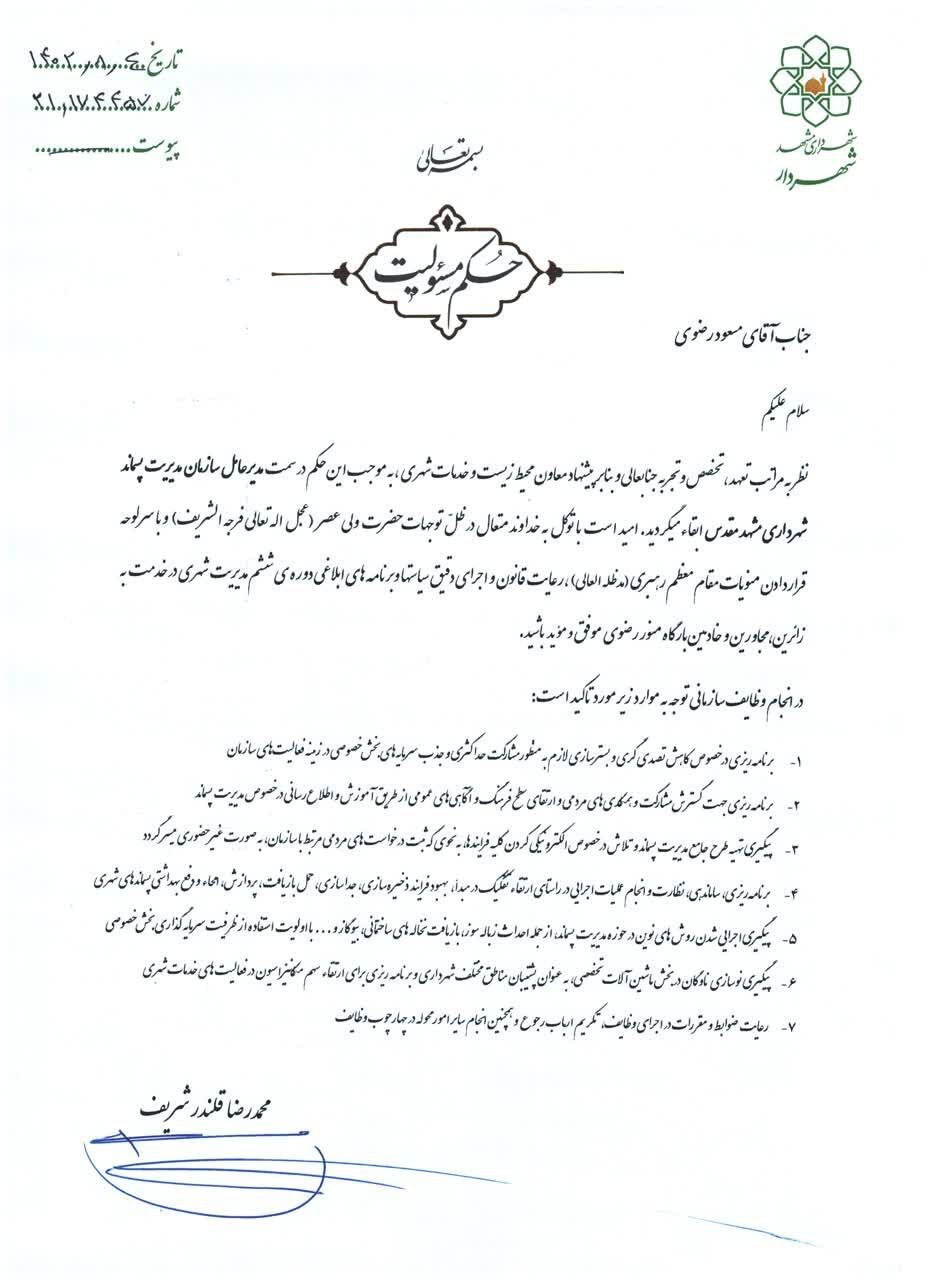 شهرداری مشهد
شهردار
تاریخ ۱۴۰۲،۸،
شماره ۲۱،۱۷۴۴۵۷
پیوست
بسمه تعالی
حکم مسئولیت
جناب آقای مسعود رضوی
سلام علیکم
نظر به مراتب تعهد، تخصص و تجربه جنابعالی و بنابر پیشنهاد معاون محیط زیست و خدمات شهری، به موجب این حکم در سمت مدیرعامل سازمان مدیریت پسماند
شهرداری مشهد مقدس ابقاء میگردید. امید است با توکل به خداوند متعال در ظلّ توجهات حضرت ولی عصر (عجل اله تعالی فرجه الشریف) و با سرلوحه
قرار دادن منویات مقام معظم رهبری (مدظله العالی)، رعایت قانون و اجرای دقیق سیاستها و برنامه های ابلاغی دوره ی ششم مدیریت شهری در خدمت به
زائرین، مجاورین و خادمین بارگاه منور رضوی موفق و مؤید باشید.
در انجام وظایف سازمانی توجه به موارد زیر مورد تاکید است:
۱- برنامه ریزی در خصوص کاهش تصدی گری و بسترسازی لازم به منظور مشارکت حداکثری و جذب سرمایه های بخش خصوصی در زمینه فعالیت های سازمان
۲- برنامه ریزی جهت گسترش مشارکت و همکدی های مردمی و ارتقای سطح فرهنگ و آگاهی های عمومی از طریق آموزش و اطلاع رسانی در خصوص مدیریت پسماند
۳- پیگیری تهیه طرح جامع مدیریت پسماند و تلاش در خصوص الکترونیکی کردن کلیه فرایندها، به نحوی که ثبت درخواست های مردمی مرتبط با سازمان، به صورت غیرحضوری میسر گردد
۴- برنامه ریزی، ساماندهی، نظارت و انجام عملیات اجرایی در راستای ارتقاء تفکیک در مبدأ، بهبود فرایند ذخیره سازی، جداسازی، حمل بازیافت، پردازش، امحاء و دفع بهداشتی پسماندهای شهری
۵- پیگیری اجرایی شدن روش های نوین در حوزه مدیریت پسماند، از جمله احداث زباله سوز، بازیافت نخاله های ساختمانی، بیوگاز و... با اولویت استفاده از ظرفیت سرمایه گذاری بخش خصوصی
۶- پیگیری نوسازی ناوگان در بخش ماشین آلات تخصصی، به عنوان پشتیبان مناطق مختلف شهرداری و برنامه ریزی برای ارتقاء سهم مکانیزاسیون در فعالیت های خدمات شهری
۷- رعایت ضوابط و مقررات در اجرای وظایف، تکریم ارباب رجوع و همچنین انجام سایر امور محوله در چهارچوب وظایف
محمدرضا قلندر شریف